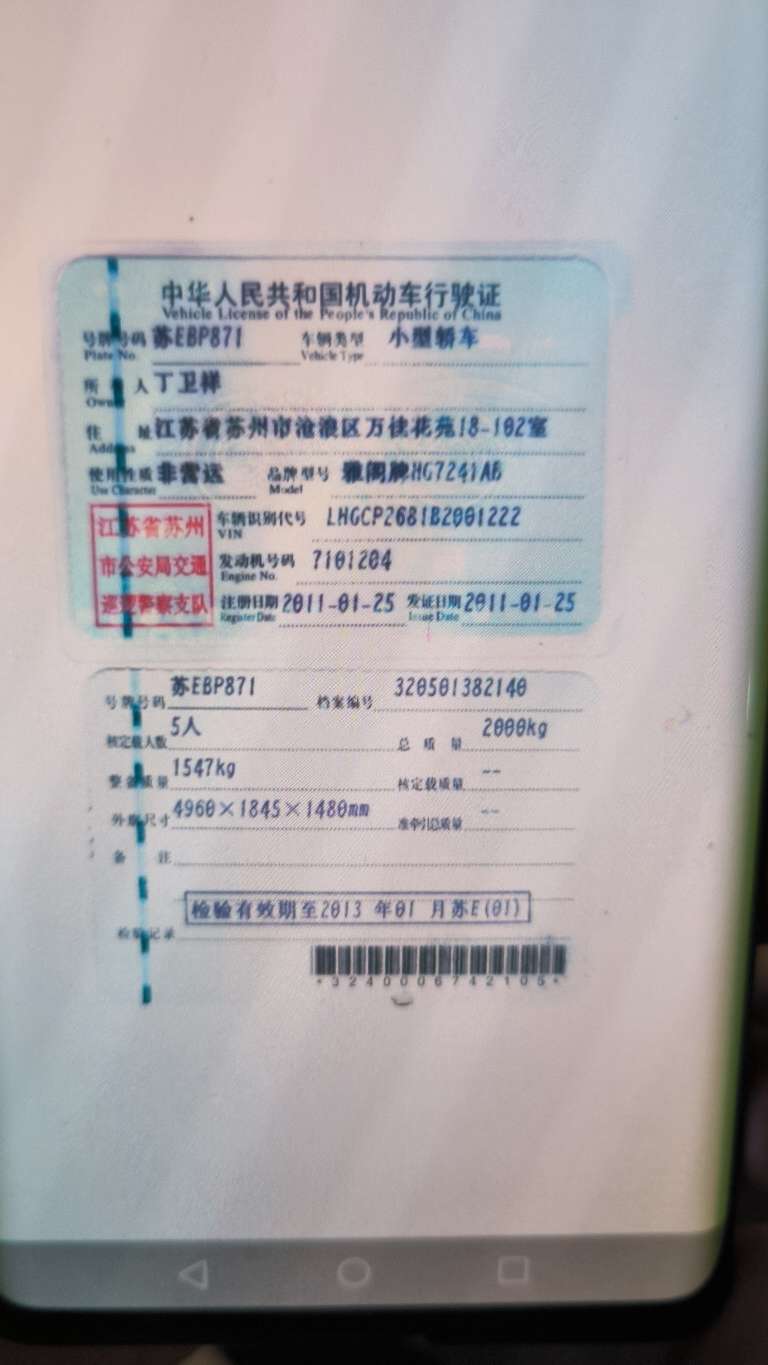 中华人民共和国机动车行驶证
Vehicle License of the People's Republic of China
号牌号码 苏EBP871 车辆类型 小型轿车
Plate No. Vehicle Type
所 人 丁卫祥
Owner
住 址 江苏省苏州市沧浪区万佳花苑18-102室
Address
使用性质 非营运 品牌型号 雅阁牌HG7241AB
Use Character Model
江苏省苏州
市公安局交通
巡逻警察支队
车辆识别代号 LHGCP2681B2001222
VIN
发动机号码 7101204
Engine No.
注册日期 2011-01-25 发证日期 2011-01-25
Register Date Issue Date
号牌号码 苏EBP871 档案编号 320501382140
核定载人数 5人 总 质 量 2000kg
整备质量 1547kg 核定载质量 --
外廓尺寸 4960×1845×1480mm 准牵引总质量 --
备 注
检验有效期至2013 年01 月苏E(01)
检验记录
*3240006742105*